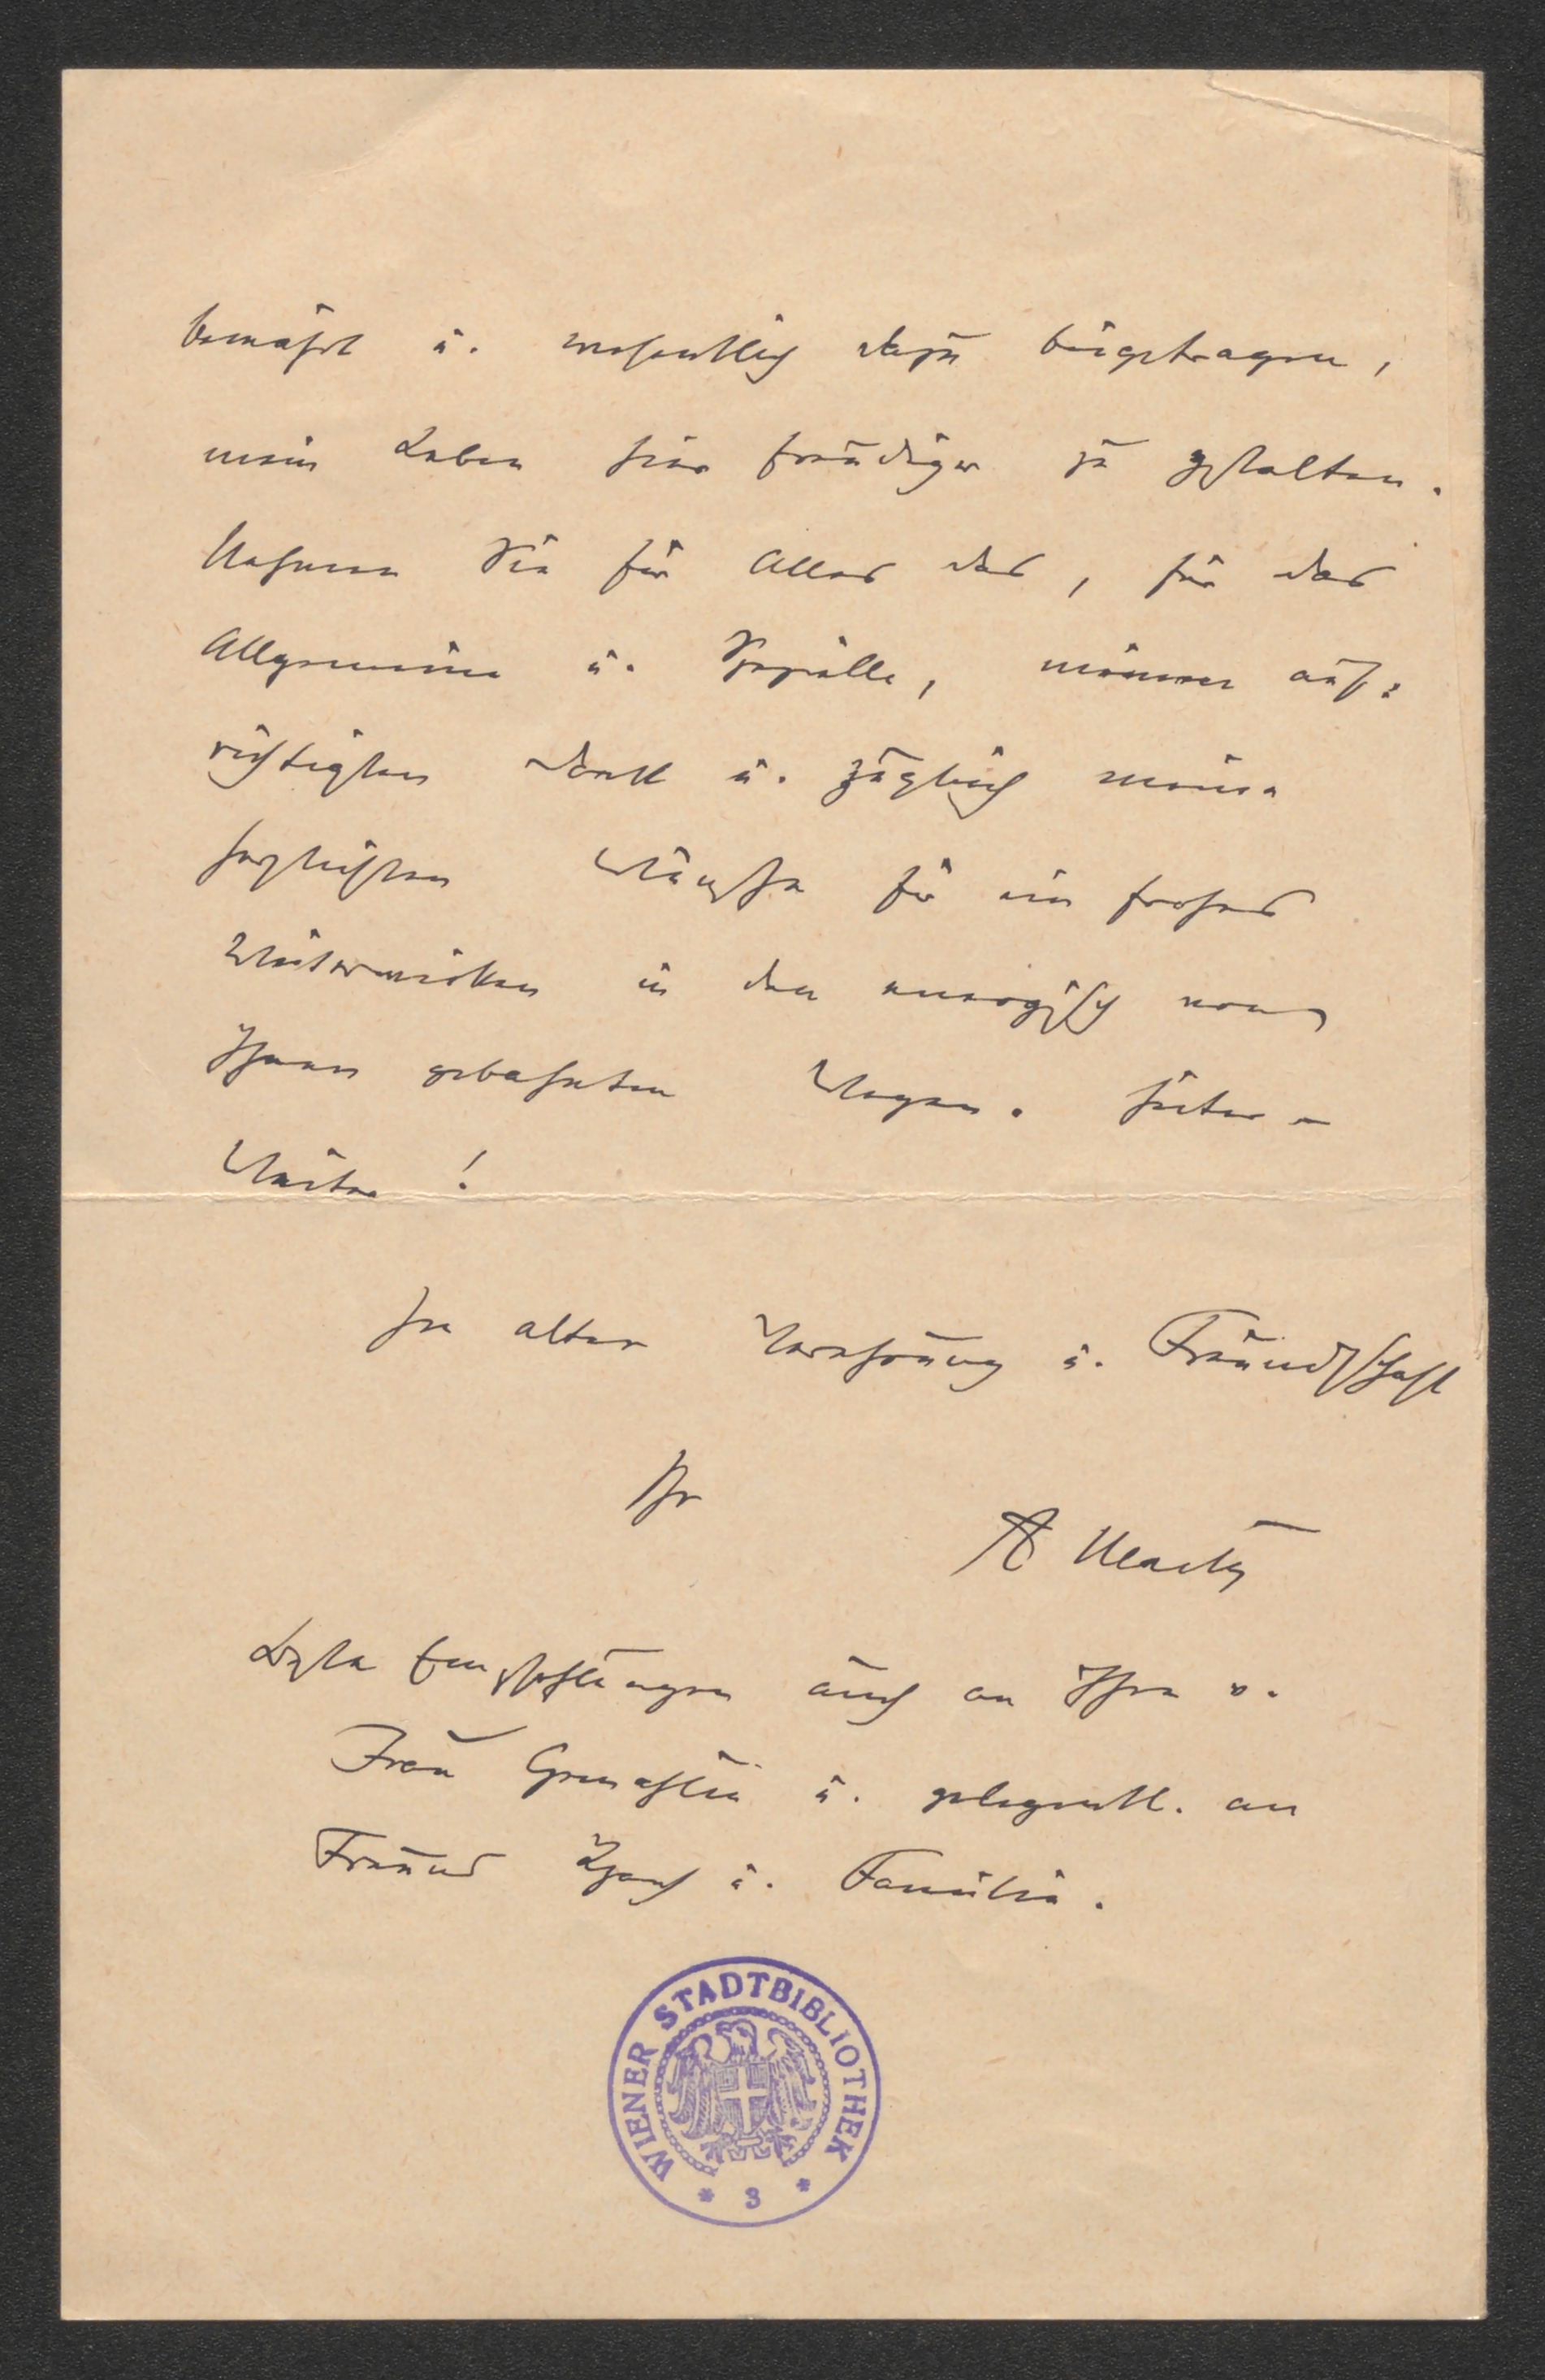 bewährt u. wesentlich dazu beigetragen,
mein Leben hier freudiger zu gestalten.
Nehmen Sie für Alles das, für das
Allgemeine u. Spezielle, meinen auf=
richtigsten Dank u. zugleich meine
herzlichsten Wünsche für ein frohes
Weiterwirken in den energisch von
Ihnen gebahnten Wegen. Heiter –
Weiter!
In alter Verehrung u. Freundschaft
Ihr
A
Beste Empfehlungen auch an Ihre v.
Frau Gemahlin u. gelegentl. an
Freund u. Familie.
WIENER STADTBIBLIOTHEK
* 3 *